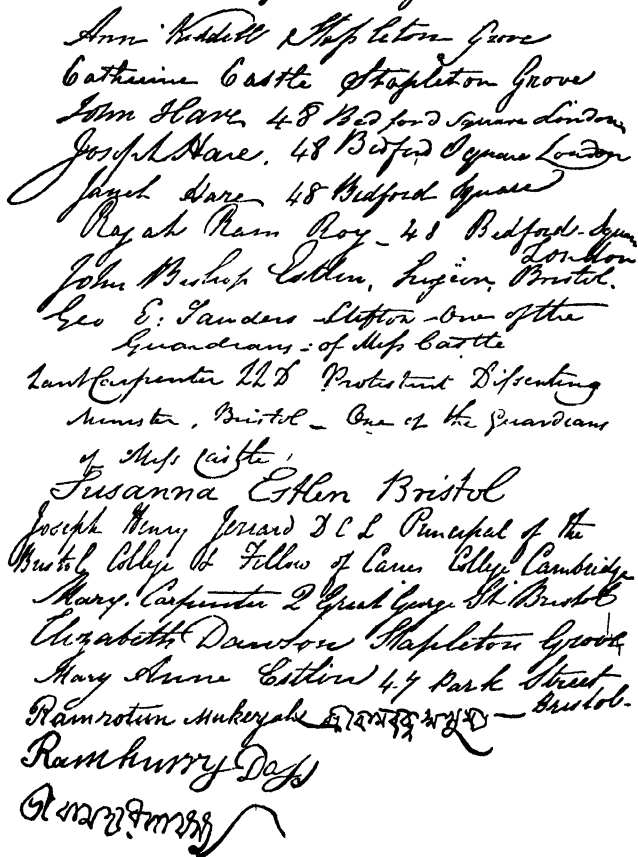 Ann Kiddell Stapleton Grove
Catherine Castle Stapleton Grove
John Hare 48 Bedford Square London
Joseph Hare. 48 Bedford Square London
Janet Hare 48 Bedford Square
Rajah Ram Roy - 48 Bedford-Square
London
John Bishop Estlin, Surgeon, Bristol.
Geo E: Sanders Clifton - One of the
Guardians - of Miss Castle
Lant Carpenter LLD Protestant Dissenting
Minister, Bristol - One of the Guardians
of Miss Castle
Susanna Estlin Bristol
Joseph Henry Jerrard D C L Principal of the
Bristol College & Fellow of Caius College Cambridge
Mary Carpenter 2 Great George St. Bristol
Elizabeth Dawson Stapleton Grove
Mary Anne Estlin 47 Park Street
Bristol-
Ramrotun Mukerjah
Ramhurry Dass